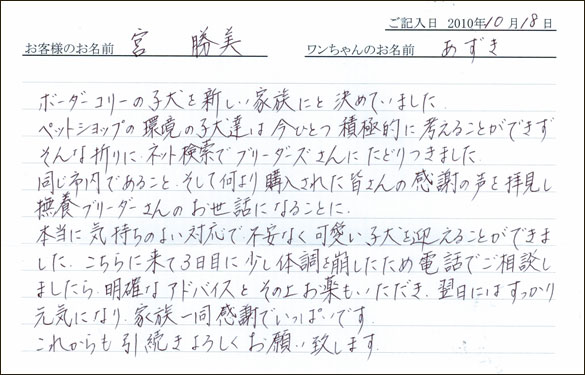 ご記入日 2010年10月18日
お客様のお名前 宮 勝美 ワンちゃんのお名前 あずき
ボーダーコリーの子犬を新しい家族にと決めていました
ペットショップの環境の子犬達は今ひとつ積極的に考えることができず
そんな折りに、ネット検索でブリーダーズさんにたどりつきました
同じ市内であること、そして何より購入された皆さんの感謝の声を拝見し
撫養ブリーダーさんのお世話になることに、
本当に気持ちのよい対応で不安なく可愛い子犬を迎えることができま
した、こちらに来て3日目に少し体調を崩したため電話でご相談し
ましたら、明確なアドバイスとその上お薬もいただき、翌日にはすっかり
元気になり、家族一同感謝でいっぱいです
これからも引続きよろしくお願い致します